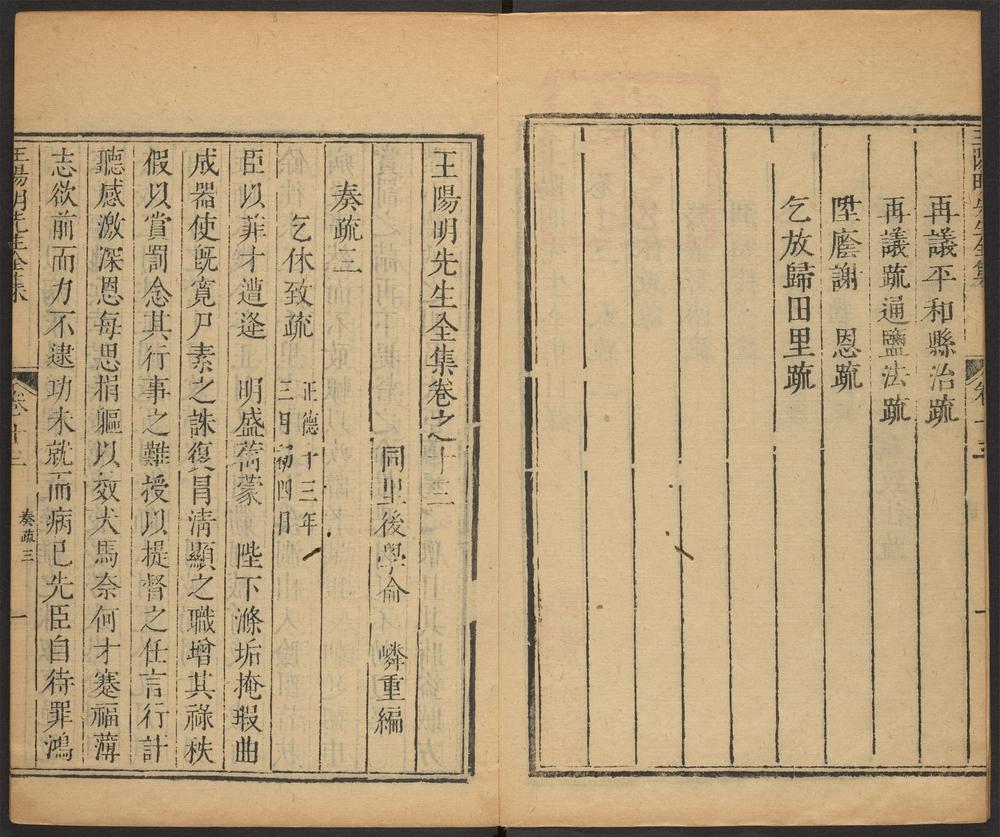 王陽明先生全集
卷十三
一
再議平和縣治疏
再議疏通鹽法疏
陞廕謝 恩疏
乞放歸田里疏
王陽明先生全集卷之十三
同里後學俞 嶙重編
奏疏三
乞休致疏 正德十三年
三月初四日
臣以菲才遭逢 明盛荷蒙 陛下滌垢掩瑕曲
成器使旣寛尸素之誅復冒清顯之職增其祿秩
假以賞罰念其行事之難授以提督之任言行計
聽感激深恩每思捐軀以效犬馬奈何才蹇福薄
志欲前而力不逮功未就而病已先臣自待罪鴻
王陽明先生全集
卷十三
奏疏三
一